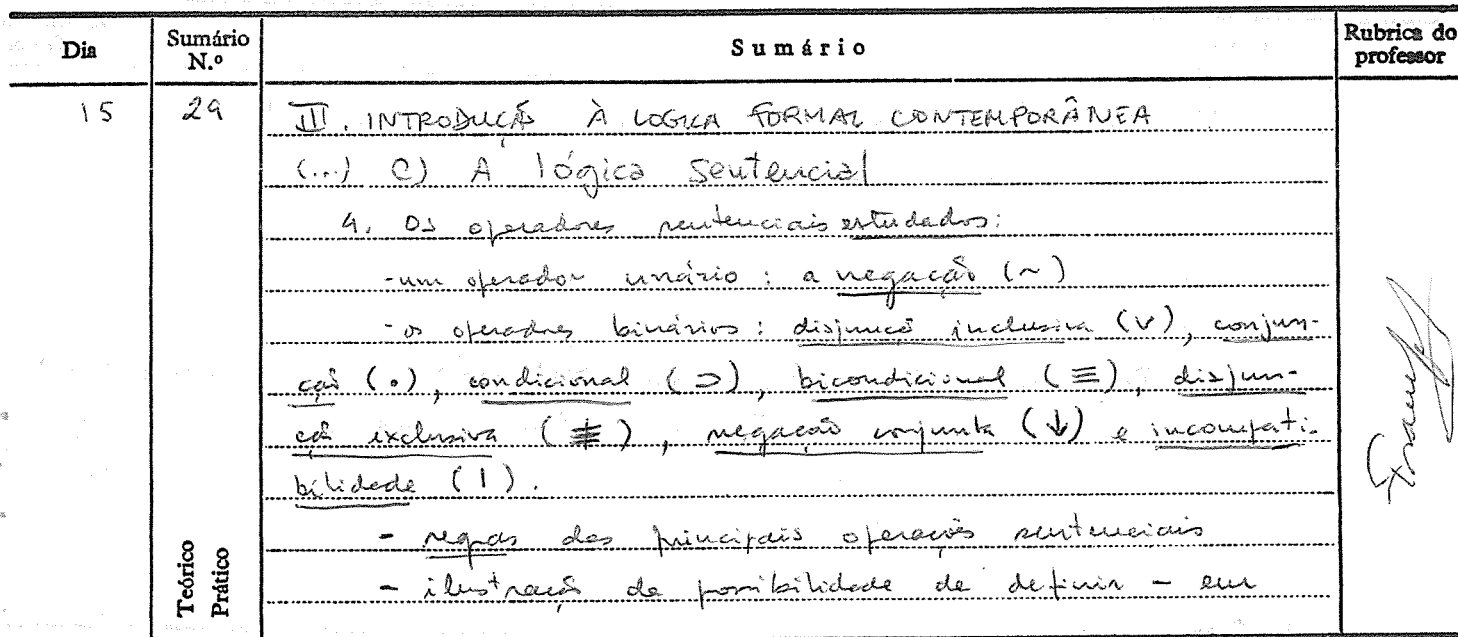 Dia Sumário N.º Sumário Rubrica do professor
15 29 III. INTRODUÇÃO À LOGICA FORMAL CONTEMPORÂNEA
(...) C) A lógica sentencial
4. Os operadores sentenciais estudados:
- um operador unário : a negação (~)
- os operadores binários : disjunção inclusiva (∨), conjun-
ção (•), condicional (⊃), bicondicional (≡), disjun-
ção exclusiva (≢), negação conjunta (↓) e incompati-
bilidade (|).
- regras das principais operações sentenciais
- ilustração da possibilidade de definir - em
Teórico
Prático